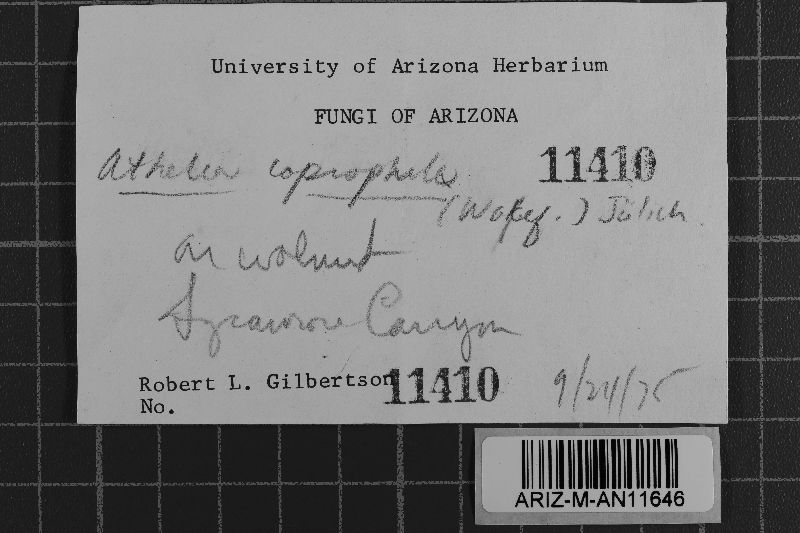 University of Arizona Herbarium
FUNGI OF ARIZONA
Athelia coprophila 11410
(Wakef.) Jülich
on walnut
Sycamore Canyon
Robert L. Gilbertson
No. 11410 9/24/75
ARIZ-M-AN11646